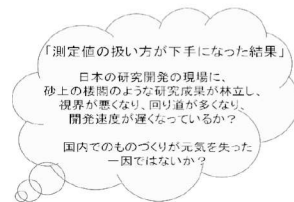 「測定値の扱い方が下手になった結果」
日本の研究開発の現場に、
砂上の楼閣のような研究成果が林立し、
視界が悪くなり、回り道が多くなり、
開発速度が遅くなっているか？
国内でのものづくりが元気を失った
一因ではないか？